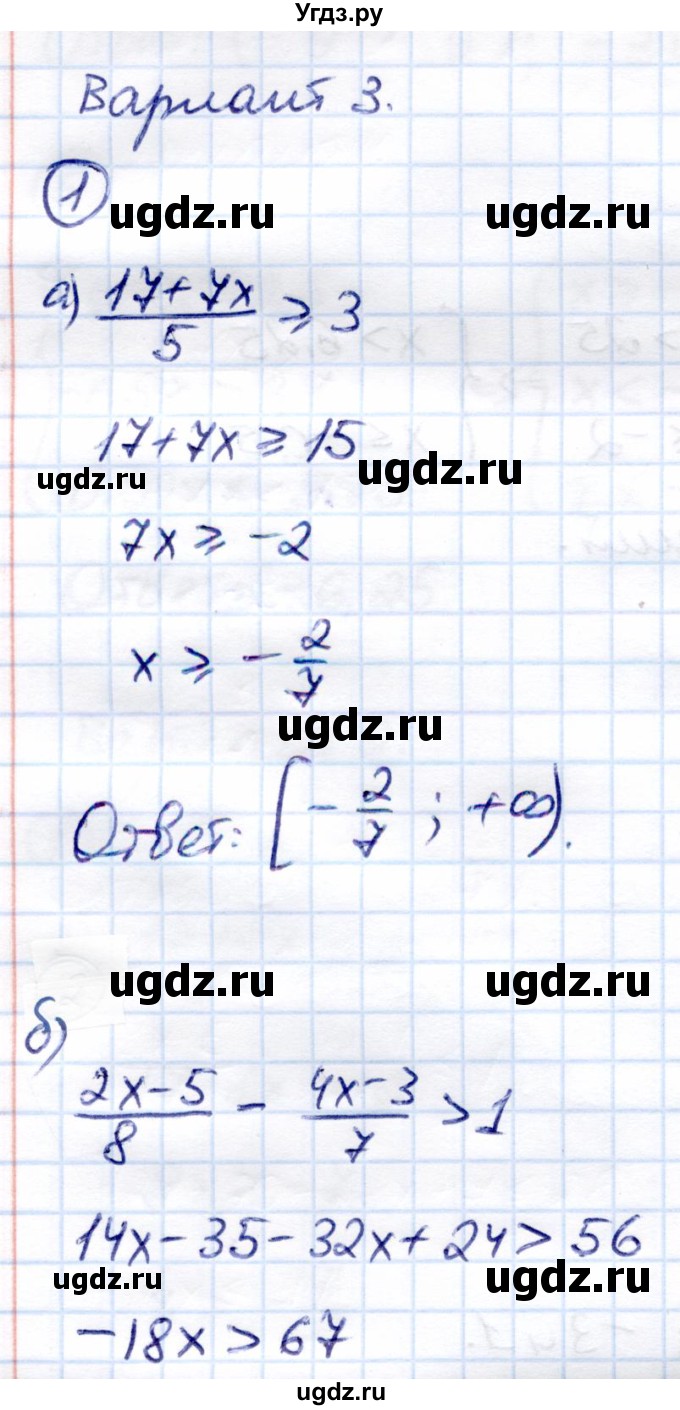 Угдз.ру
Вариант 3.
1
ugdz.ru ugdz.ru
а) (17+7x)/5 ≥ 3
17+7x ≥ 15
ugdz.ru ugdz.ru
7x ≥ -2
x ≥ -2/7
ugdz.ru
Ответ: [-2/7; +∞).
ugdz.ru ugdz.ru
б)
(2x-5)/8 - (4x-3)/7 > 1
14x-35-32x+24 > 56
ugdz.ru ugdz.ru
-18x > 67
ugdz.ru